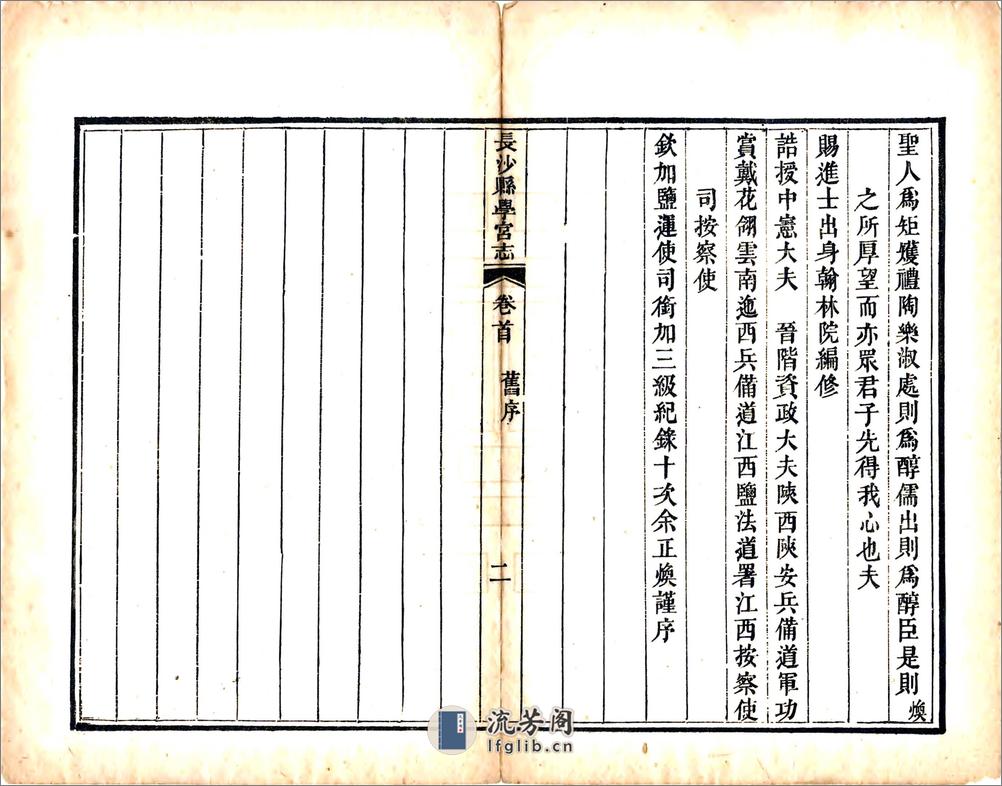 聖人爲矩矱禮陶樂淑處則爲醇儒出則爲醇臣是則煥
之所厚望而亦眾君子先得我心也夫
賜進士出身翰林院編修
誥授中憲大夫 晉階資政大夫陝西陝安兵備道軍功
賞戴花翎雲南迤西兵備道江西鹽法道署江西按察使
司按察使
欽加鹽運使司銜加三級紀錄十次余正煥謹序
長沙縣學宮志 卷首 舊序 二
流芳阁
lfglib.cn